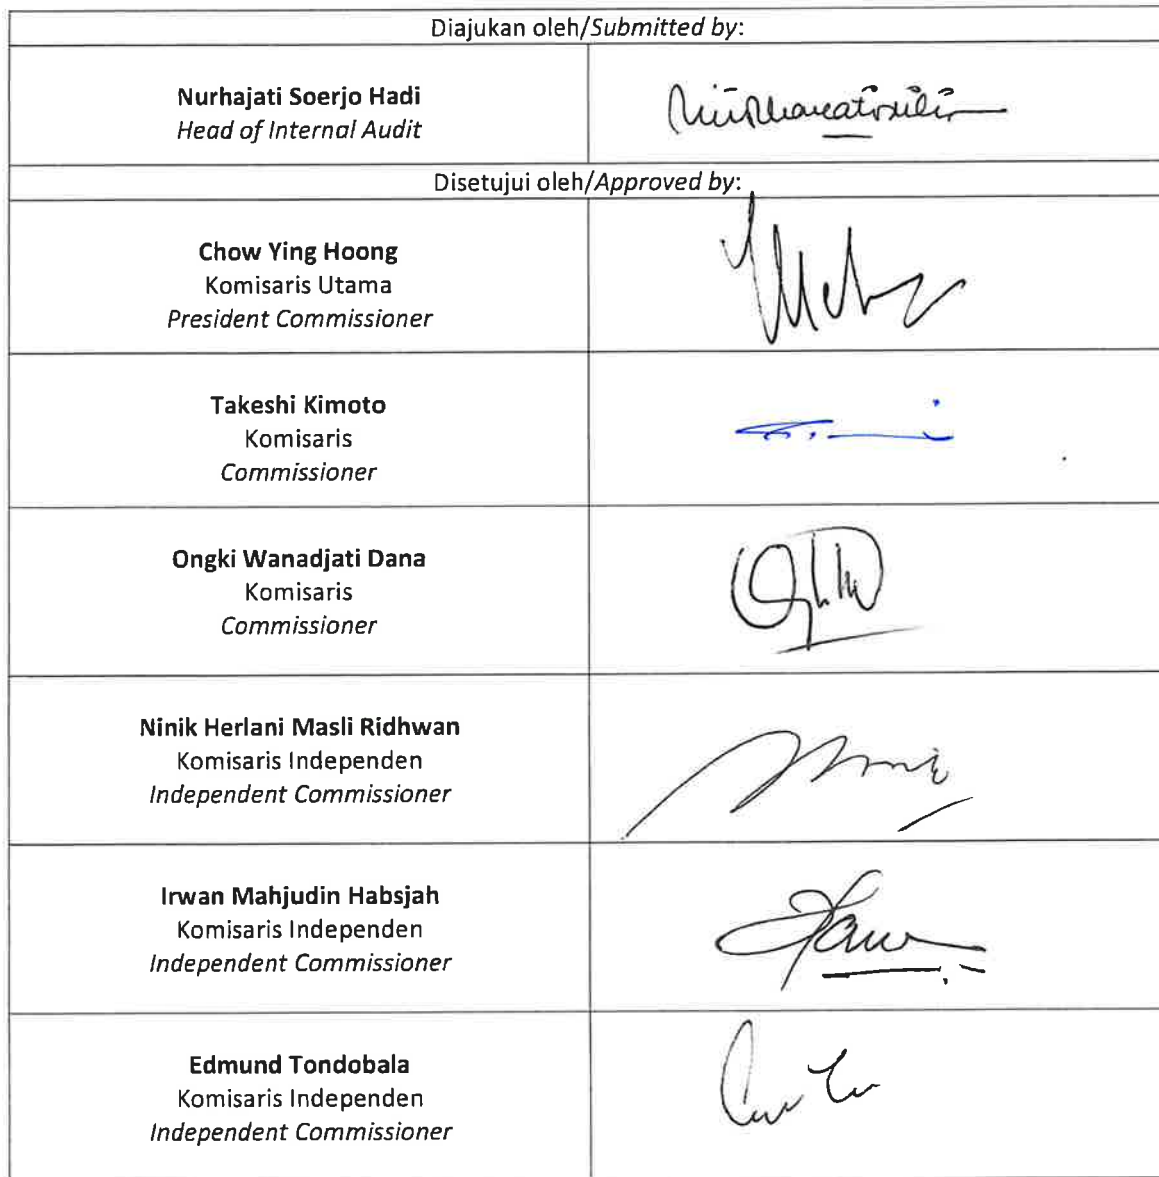 Diajukan oleh/Submitted by:
Nurhajati Soerjo Hadi
Head of Internal Audit
Disetujui oleh/Approved by:
Chow Ying Hoong
Komisaris Utama
President Commissioner
Takeshi Kimoto
Komisaris
Commissioner
Ongki Wanadjati Dana
Komisaris
Commissioner
Ninik Herlani Masli Ridhwan
Komisaris Independen
Independent Commissioner
Irwan Mahjudin Habsjah
Komisaris Independen
Independent Commissioner
Edmund Tondobala
Komisaris Independen
Independent Commissioner